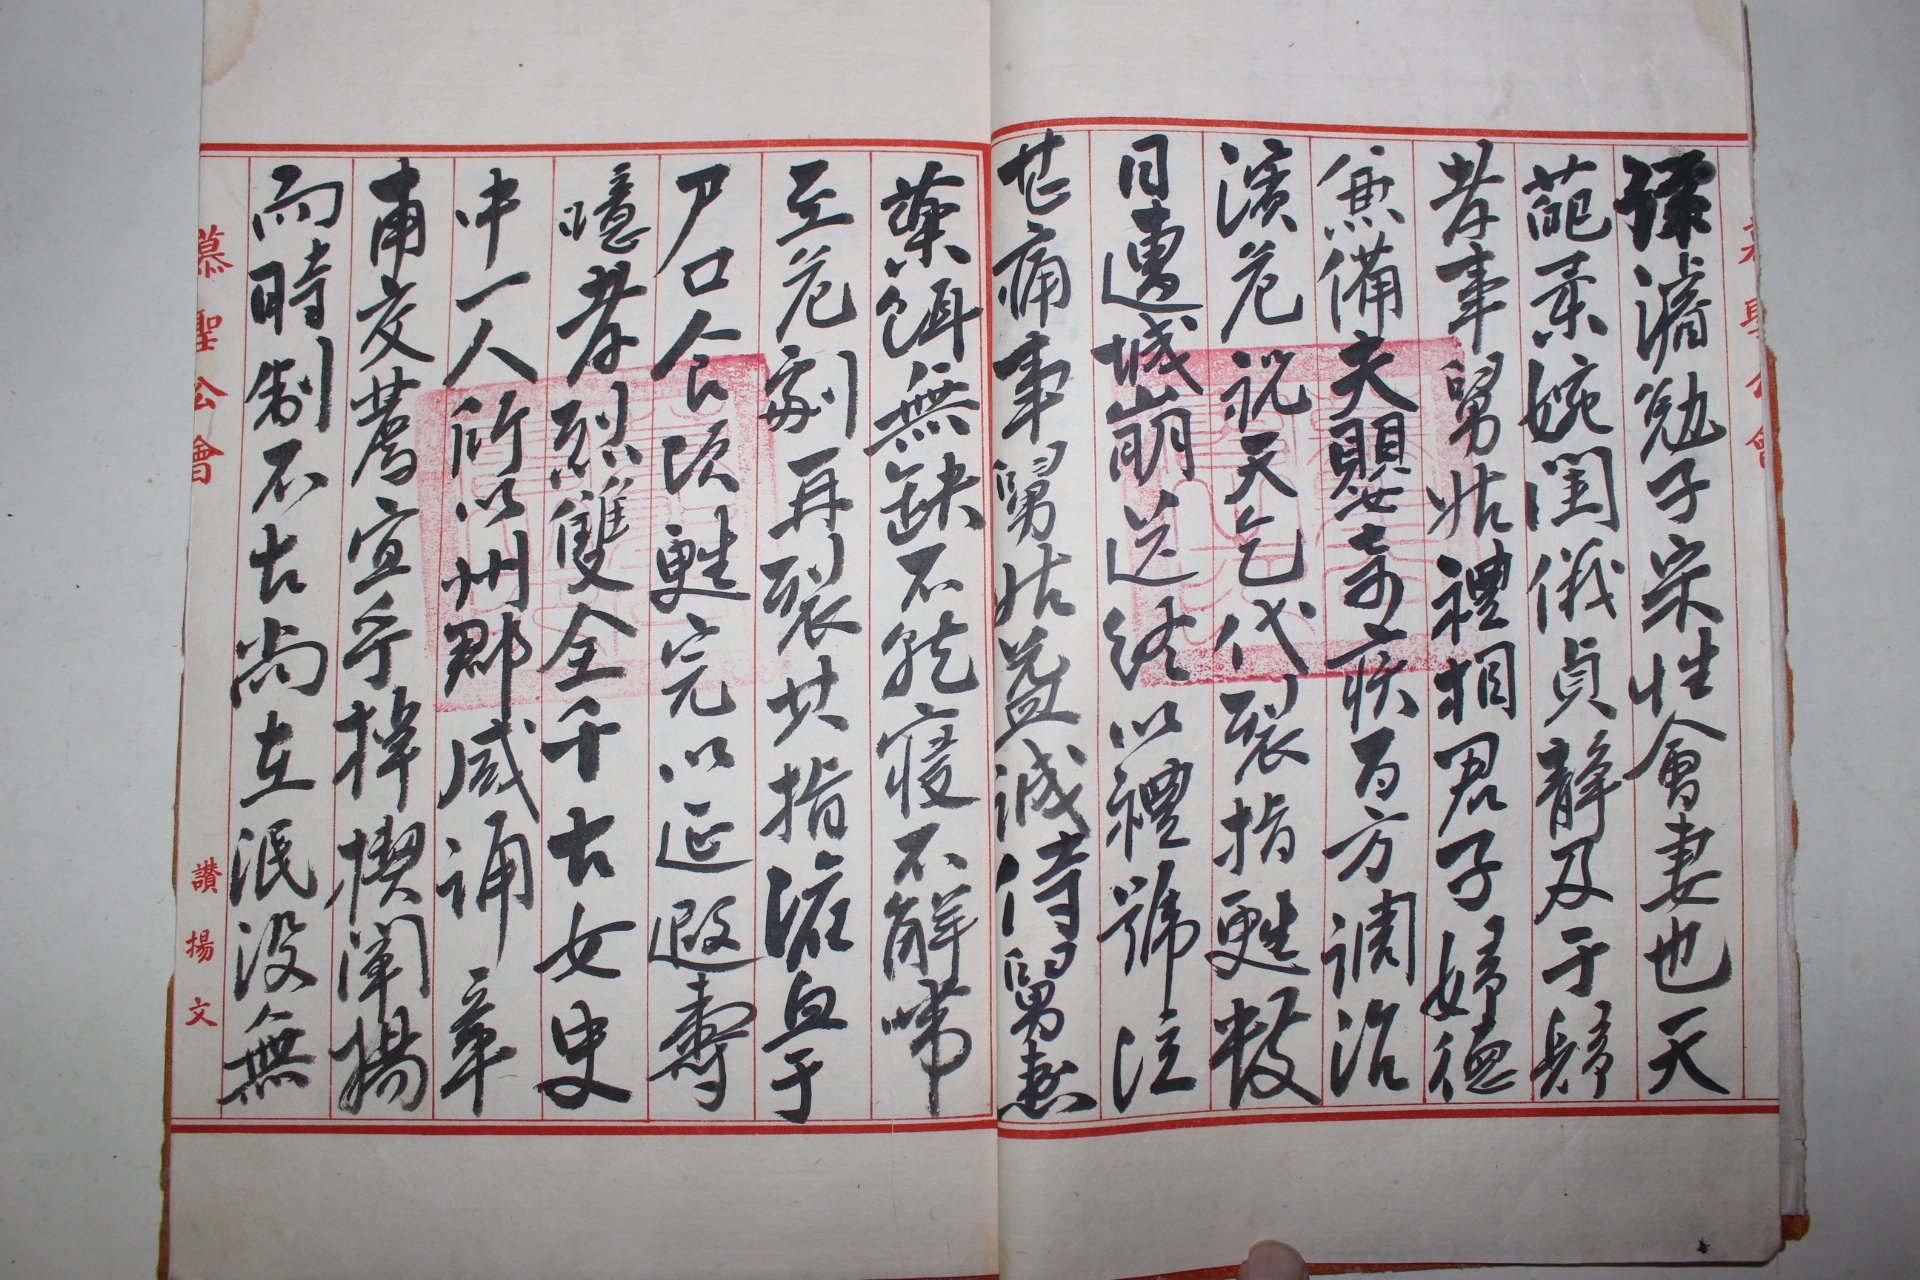 諱濬勉子宋性會妻也天
葩柔婉閨儀貞靜及于歸
孝事舅姑禮相君子婦德
無備夫嬰奇疾百方調治
濱危祝天乞代裂指甦數
日遭城崩送終以禮號泣
悲痛事舅姑益誠侍舅患
藥餌無缺不能寢不解帶
至危劇再裂其指流血于
尸口食頃甦完以延遐壽
噫孝烈雙全千古女史
中一人所以州郡咸誦章
甫交薦宜乎棹楔闡揚
而時制不古尚在泯沒無
慕聖公會
讃揚文